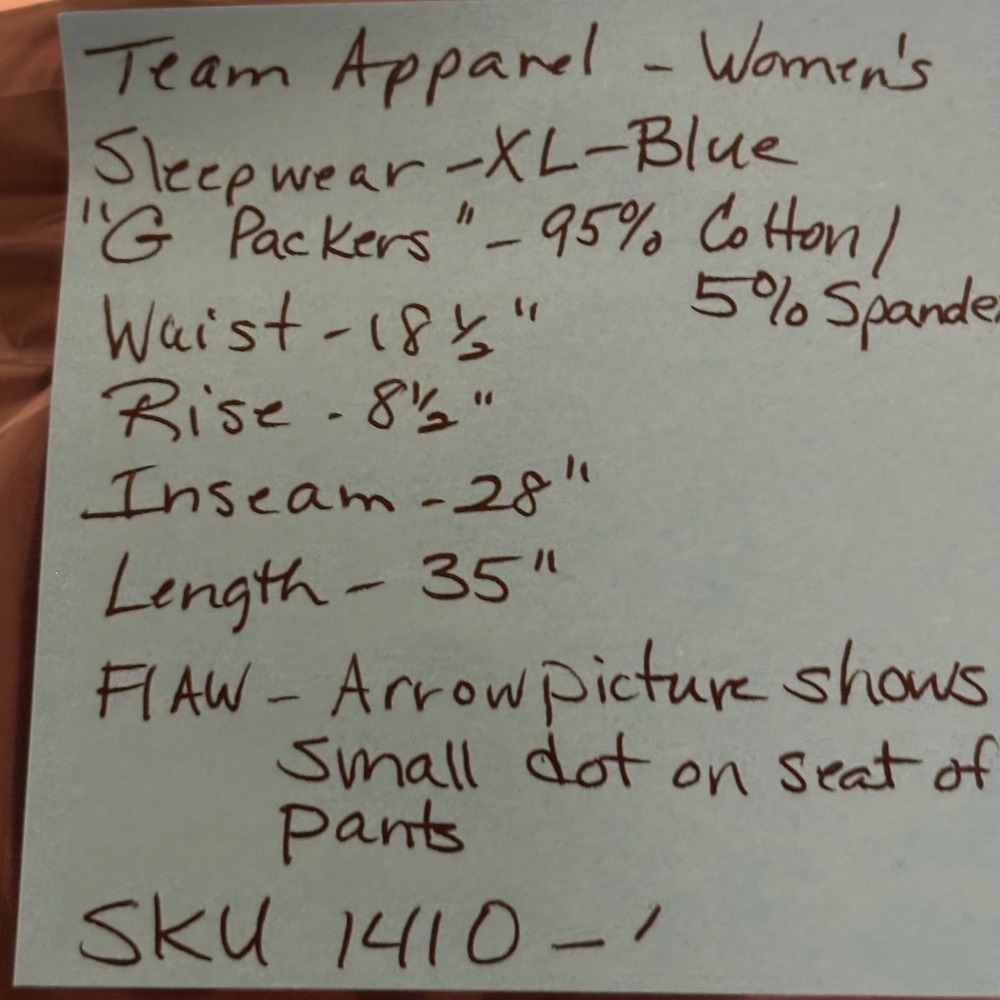 Team Apparel - Women's
Sleepwear - XL - Blue
"G Packers" - 95% Cotton/
5% Spandex
Waist - 18 ½"
Rise - 8½"
Inseam - 28"
Length - 35"
FlAW - Arrow picture shows
small dot on seat of
pants
SKU 1410 -